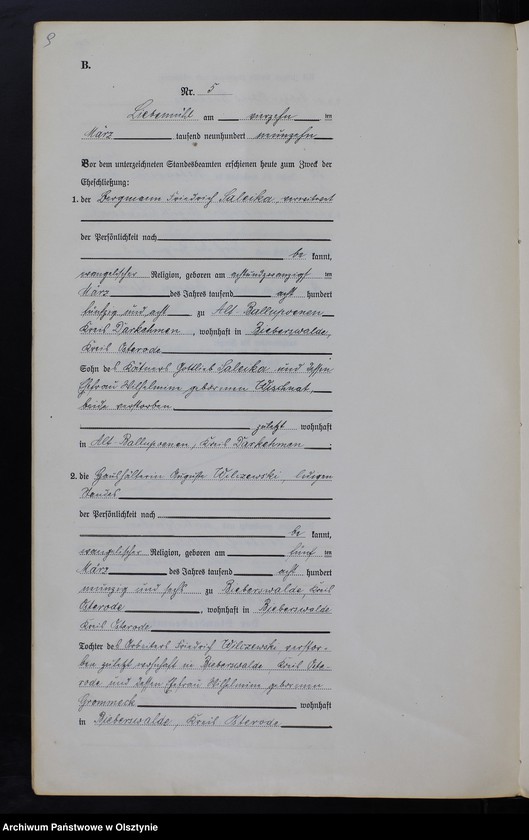 9
B.
Nr. 5
Liebemühl am vierzehn ten
März tausend neunhundert neunzehn
Vor dem unterzeichneten Standesbeamten erschienen heute zum Zweck der
Eheschließung:
1. der Bergmann Friedrich Saleika, verwitwet
der Persönlichkeit nach
be kannt,
evangelischer Religion, geboren am achtundzwanzigsten
März des Jahres tausend acht hundert
fünfzig und acht zu Alt Ballupönen
Kreis Darkehmen, wohnhaft in Bieberswalde,
Kreis Osterode
Sohn des Kätners Gottlieb Saleika und dessen
Ehefrau Wilhelmine geborenen
beide verstorben
zuletzt wohnhaft
in Alt Ballupönen, Kreis Darkehmen.
2. die Haushälterin Auguste Wilczewski, ledigen
Standes
der Persönlichkeit nach
be kannt,
evangelischer Religion, geboren am fünf ten
März des Jahres tausend acht hundert
neunzig und sechs zu Bieberswalde, Kreis
Osterode, wohnhaft in Bieberswalde
Kreis Osterode
Tochter des Arbeiters Friedrich Wilczewski verstor-
ben zuletzt wohnhaft in Bieberswalde, Kreis Oste-
rode und dessen Ehefrau Wilhelmine geborenen
Grommeck wohnhaft
in Bieberswalde, Kreis Osterode
Archiwum Państwowe w Olsztynie